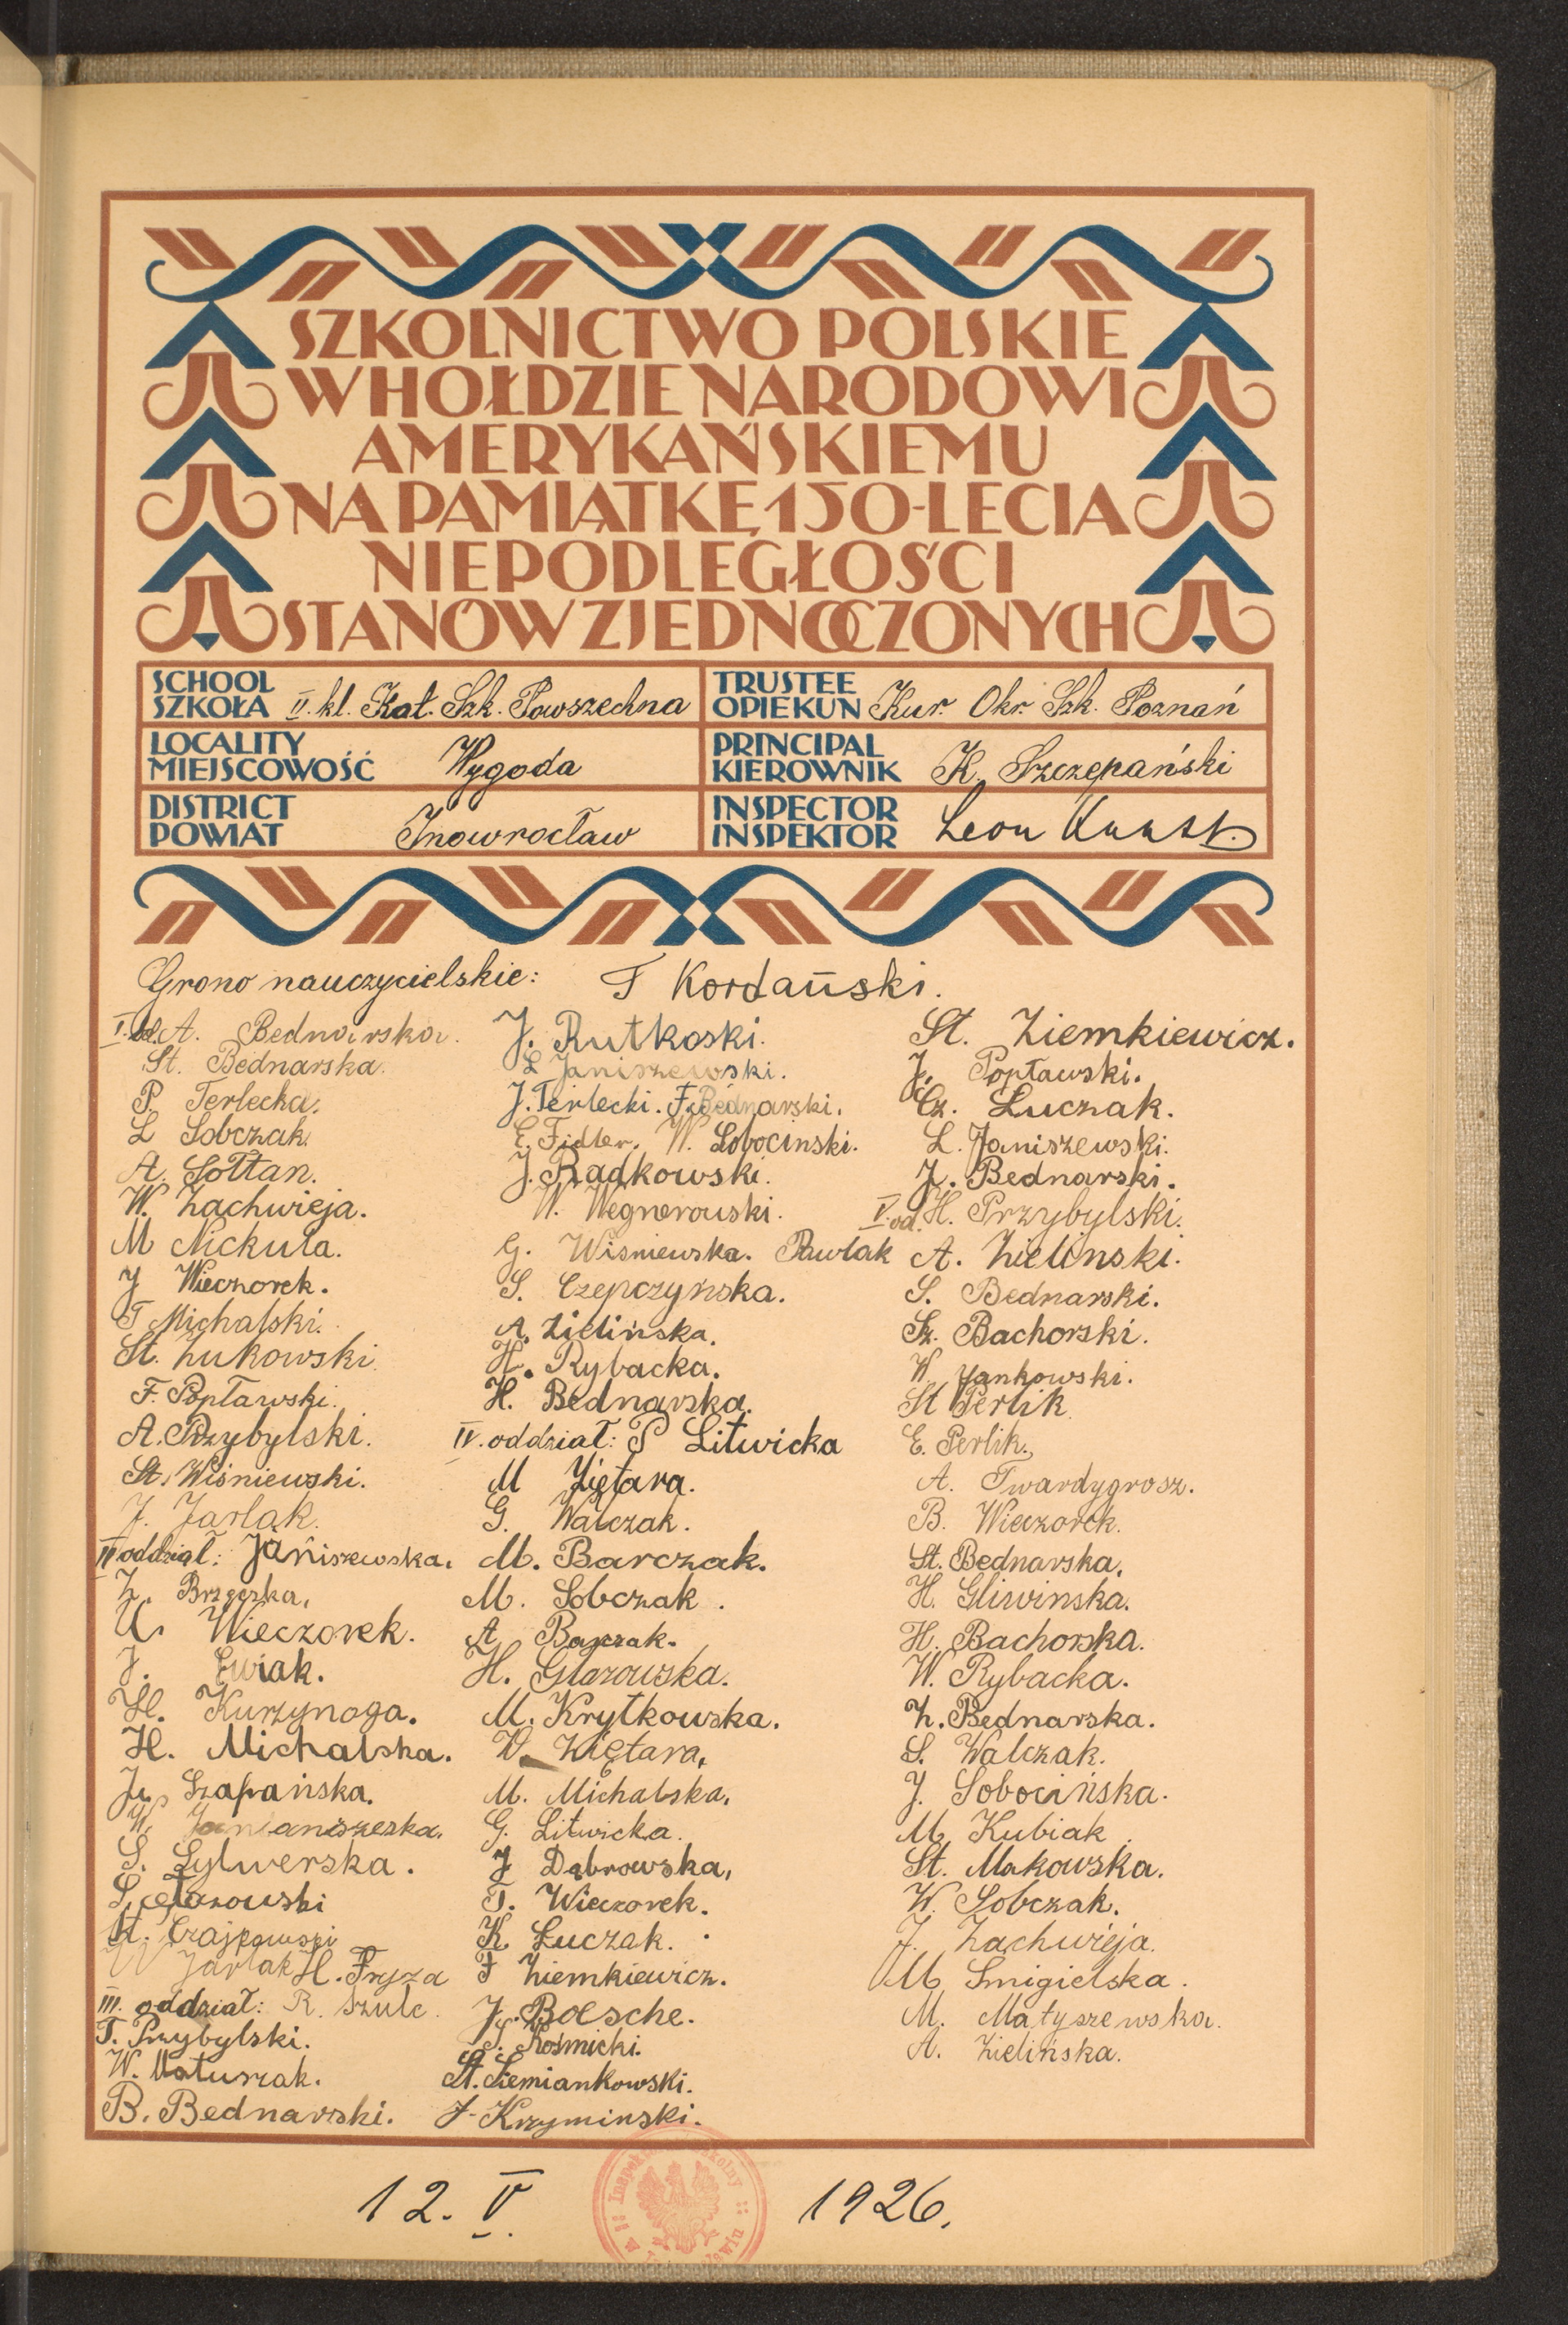 SZKOLNICTWO POLSKIE
W HOŁDZIE NARODOWI
AMERYKAŃSKIEMU
NA PAMIĄTKĘ 150-LECIA
NIEPODLEGŁOŚCI
STANÓW ZJEDNOCZONYCH
SCHOOL
SZKOŁA II. kl. Kat. Szk. Powszechna
TRUSTEE
OPIEKUN Kur. Okr. Szk. Poznań
LOCALITY
MIEJSCOWOŚĆ Wygoda
PRINCIPAL
KIEROWNIK K. Szczepański
DISTRICT
POWIAT Inowrocław
INSPECTOR
INSPEKTOR Leon
Grono nauczycielskie: F Kordański.
A. Bednarska.
St. Bednarska.
P. Terlecka.
L Sobczak.
A. Sołtan.
W. Zachwieja.
M Nickula.
J Wieczorek.
T Michalski.
St. Żukowski.
F. Popławski.
A. Przybylski.
St. Wiśniewski.
J. Jarlak.
II oddział: Janiszewska.
Z. Brzęczka.
U. Wieczorek.
J. Ewiak.
H. Kurzynoga.
H. Michalska.
J. Szapańska.
W.
S. Sylwerska.
St. Czajkowski
W Jarlak H. Fryza
III. oddział: R. Szulc.
T. Przybylski.
W. Matuszak.
B. Bednarski.
J. Rutkoski.
L Janiszewski.
J. Terlecki. F. Bednarski.
E. Fidler, W. Sobociński.
J. Radkowski.
W. Wegnerowski.
G. Wiśniewska. Pawlak
S. Czepczyńska.
A. Zielińska.
H. Rybacka.
H. Bednarska.
IV. oddział: P Litwicka
M Ziętara.
G. Walczak.
M. Barczak.
M. Sobczak.
A Barczak.
H. Głazowska.
M. Krytkowska.
W. Ziętara.
M. Michalska.
G. Litwicka.
J Dąbrowska.
T. Wieczorek.
K Łuczak.
F Ziemkiewicz.
J. Boesche.
S. Kośmicki.
St. Siemiankowski.
J. Krzyminski.
St. Ziemkiewicz.
J. Popławski.
Cz. Łuczak.
L. Janiszewski.
J. Bednarski.
V. od. H. Przybylski.
A. Zielinski.
S. Bednarski.
Sz. Bachorski.
W. Jankowski.
St Perlik
E. Perlik.
A. Twardygrosz.
B. Wieczorek.
St. Bednarska.
H. Gliwinska.
H. Bachorska.
W. Rybacka.
Z. Bednarska.
S. Walczak.
J. Sobocińska.
M Kubiak.
St. Makowska.
W. Sobczak.
J. Zachwieja.
M Smigielska.
M. Matyszewska.
A. Zielińska.
12. V. 1926.